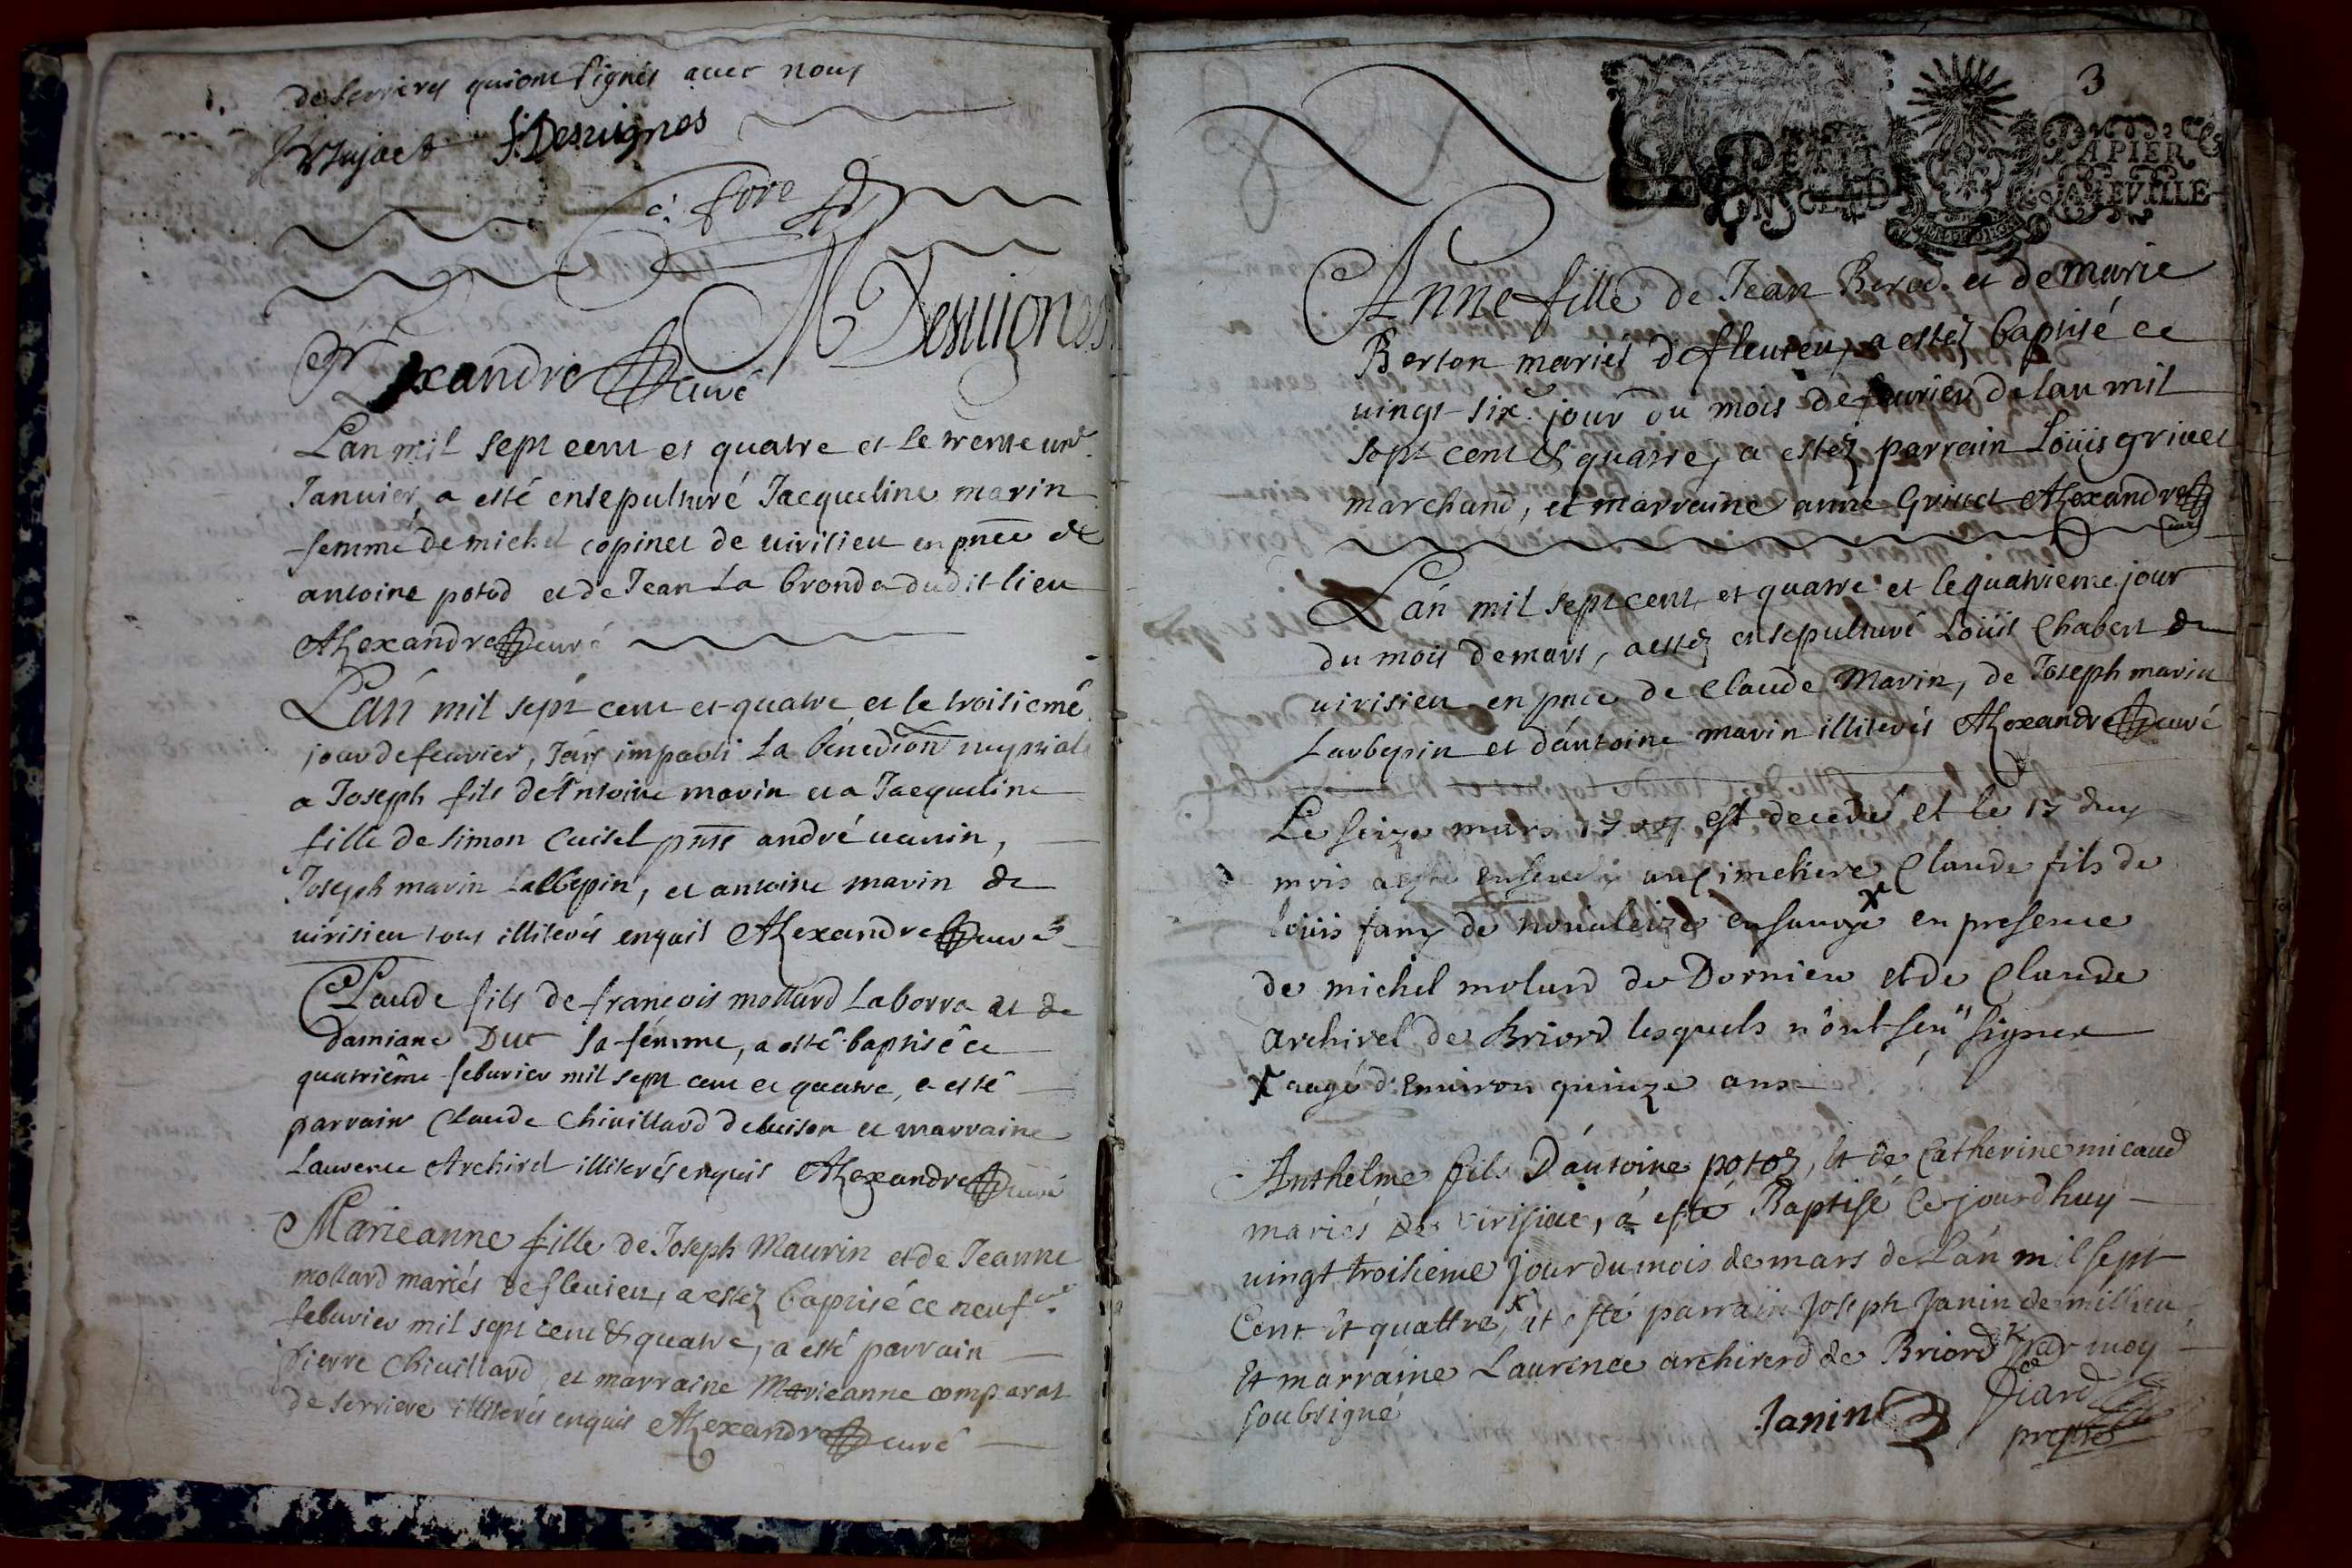 de serrieres qui ont signés avec nous
Brujact f: Desuignes
c: fore
M Desuignes
Alexandre curé
Lan mil sept cent et quatre et le trente une
Januier, a esté ensepulturé Jacqueline marin
femme de michel copinet de uirisieu en pnce de
antoine potod et de Jean La bronda dudit lieu
Alexandre curé
Lan mil sept cent et quatre et le troisieme
jour de feurier, Jay imparti La bénediction nuptiale
a Joseph fils dé Antoine marin et a Jacqueline
fille de simon Cuisel pnts andré uaurin,
Joseph marin Larbepin, et antoine marin de
uirisieu tous illiterés enquis Alexandre curé
Claude fils de françois mollard Laborra et de
damiane Duc sa femme, a esté baptisé ce
quatriême feburier mil sept cent et quatre, a esté
parrain Claude Chiuillard debuison et marraine
Laurence Archirel illiterés enquis Alexandre curé
Marieanne fille de Joseph Maurin et de Jeanne
mollard mariés de fleuieu, a estez baptisé ce neuf
feburier mil sept cent & quatre, a esté parrain
Pierre Chiuillard et marraine Marieanne comparat
de serriere illiterés enquis Alexandre curé
3
PETIT PAPIER
Anne fille de Jean Berod et de marie
Berton mariés de fleurieu, a estez baptisé ce
uingt-six jour du mois de feurier de lan mil
sept cent & quatre, a estez parrain Loüis griuet
marchand, et marraine anne Griuet Alexandre
curé
Lan mil sept cent et quatre et le quatrieme jour
du mois de mars, a estez ensepulturé Loüis Chabert de
uirisieu en pnce de Claude Marin, de Joseph marin
Larbepin et dántoine marin illiterés Alexandre curé
Le seize mars 1704 est decedé et le 17 duy
mois a esté enseueli au Cimetiere Claude fils de
loüis fany de noualeize en sauoye x en presence
de michel molard de Dornieu et de Claude
archirel de Briord lesquels n'ont seu signer
x aagé d'Enuiron quinze ans
Anthelme fils Dántoine potoz, Et de Catherine micaud
mariés de Virisieu, á esté Baptisé Cejourdhuy
uingt troisieme jour du mois de mars de Lán mil sept
Cent et quattre, x et esté parrain Joseph Janin de millieu
Et marraine Laurence archirerd de Briord x par moy
soubsigné
Janin Piard
prestre